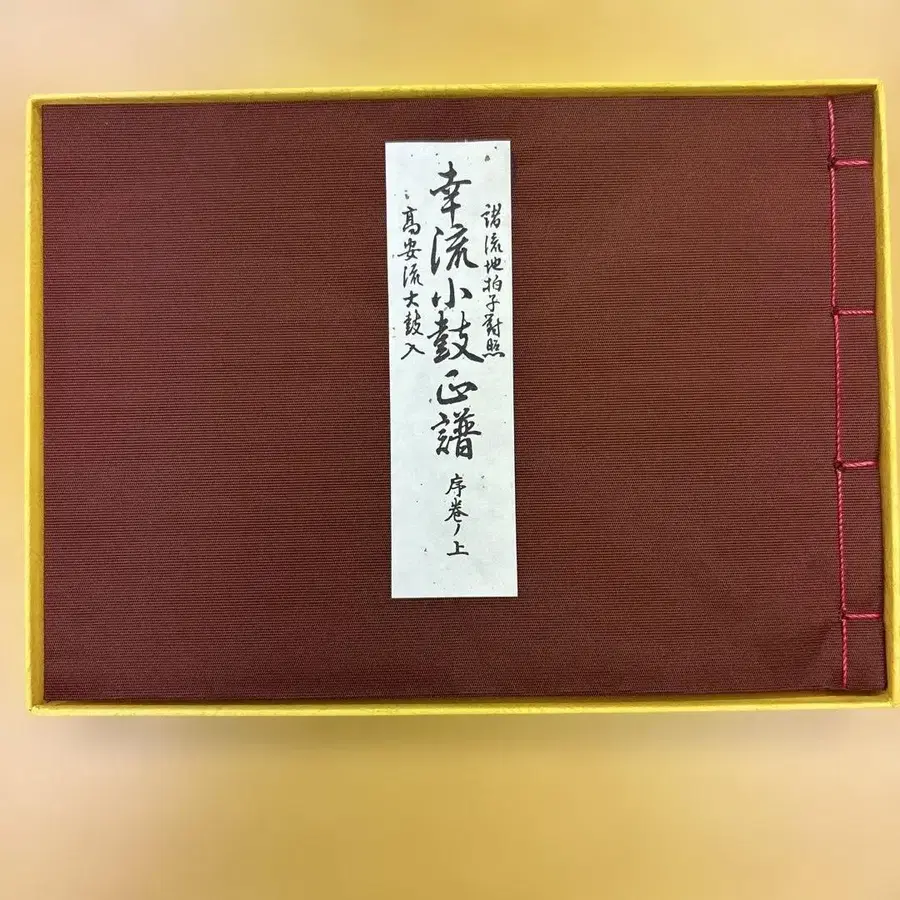 諸流地拍子對照
幸流小鼓正譜 序卷ノ上
高安流大鼓入